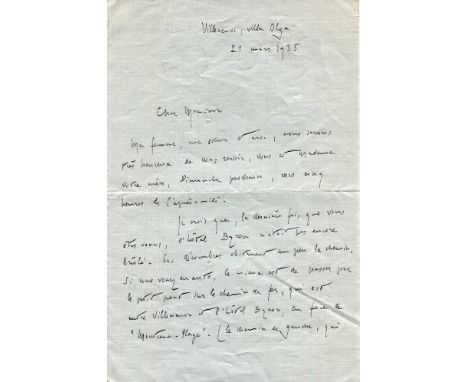 Villeneuve, villa Olga
21 mars 1935
Cher Monsieur
Ma femme, ma sœur et moi, nous serions
très heureux de vous revoir, vous et Madame
votre mère, Dimanche prochain, vers cinq
heures de l'après-midi.
Je crois que, la dernière fois, que vous
êtes venus, l'hôtel Byron n'était pas encore
brûlé. Les décombres obstruent un peu le chemin.
Si vous venez en auto, le mieux est de passer par
le petit pont sur le chemin de fer, qui est
entre Villeneuve et l'hôtel Byron, en face de
"Montreux-Plage". (le chemin de gauche, qui